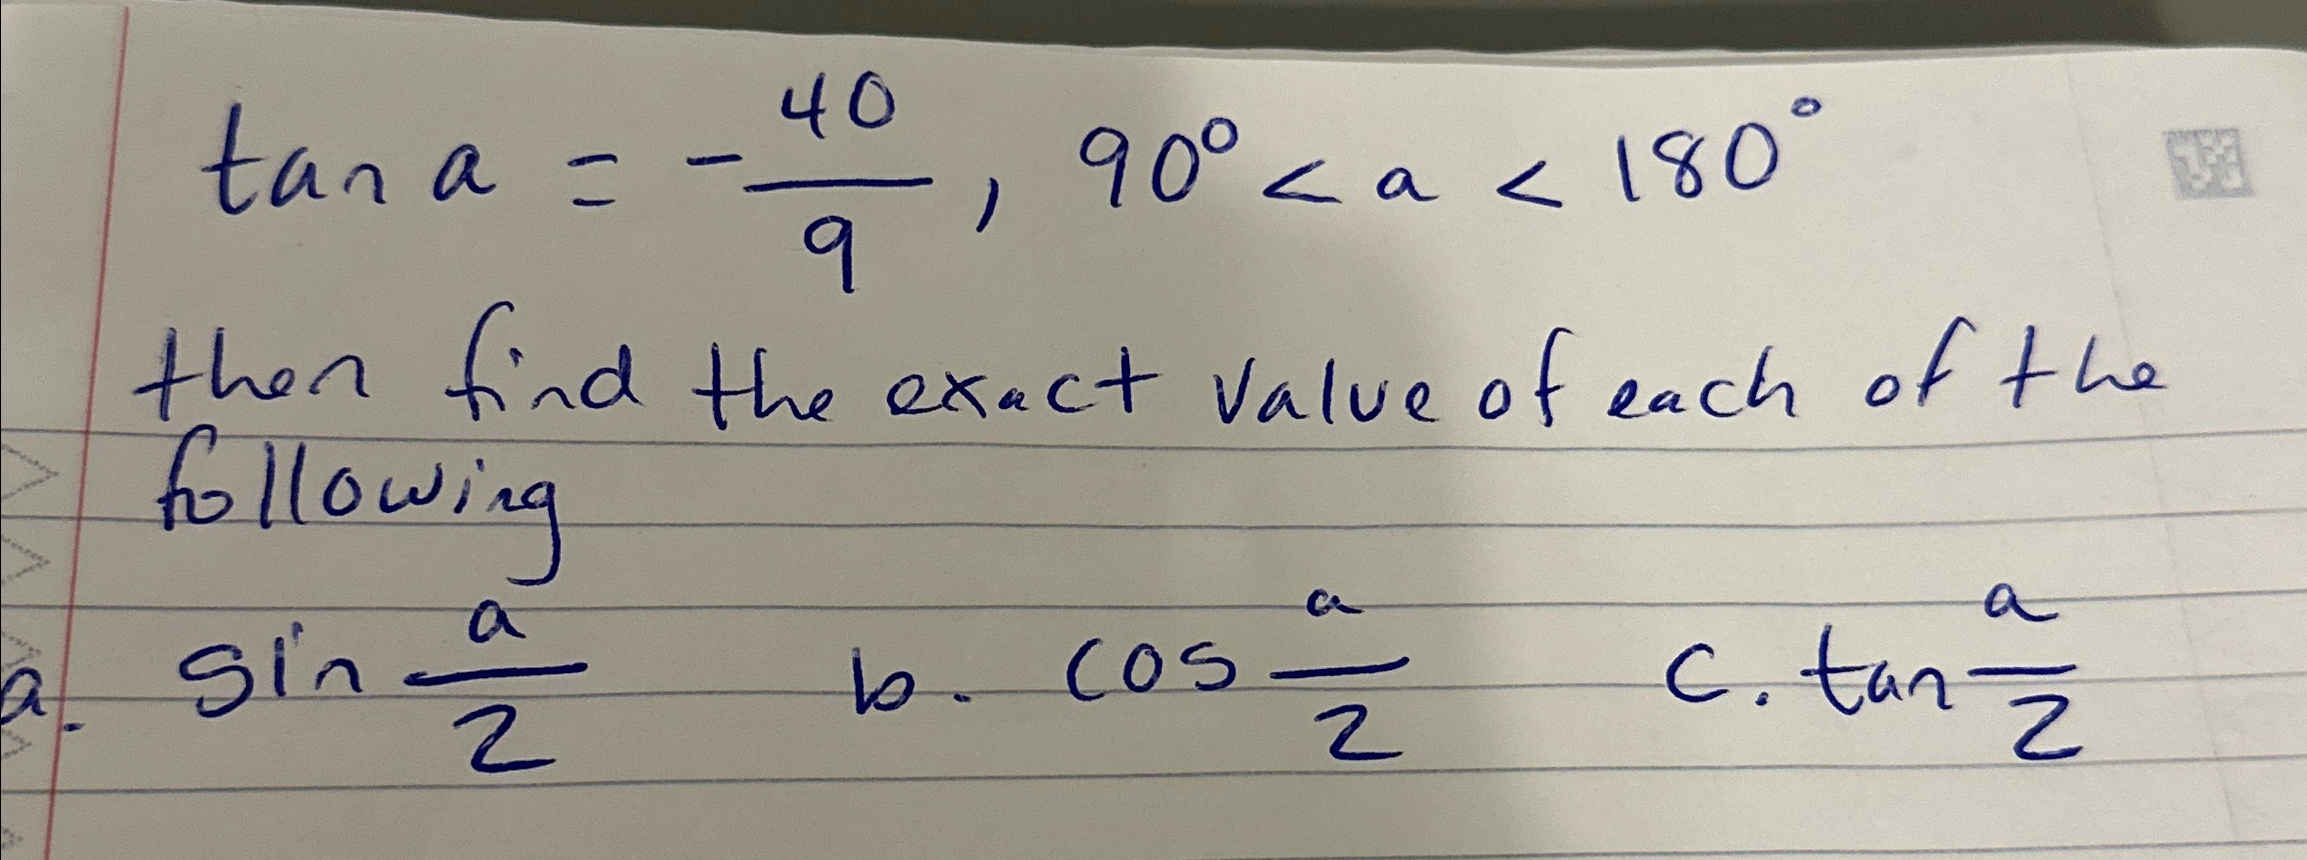 tan a = - 40/9 , 90° < a < 180°
then find the exact value of each of the
following
a. sin a/2 b. cos a/2 c. tan a/2